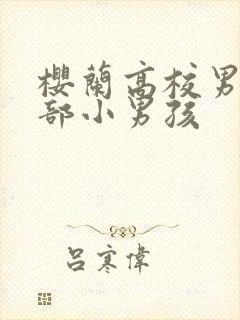 櫻蘭高校男
部小男孩
吕寒偉